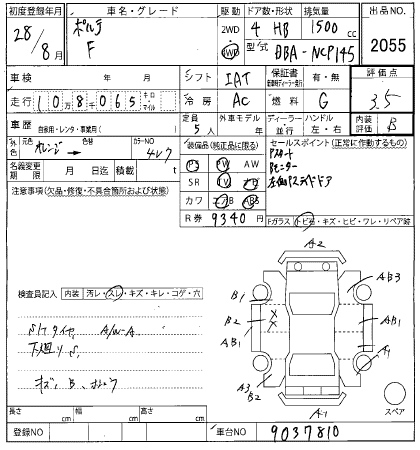 初度登録年月 車名・グレード 駆動 ドア数・形状 排気量 出品NO.
28/8月 ポルテ F 2WD 4WD 4 HB 1500cc 2055
型式 DBA-NCP145
車検 年 月 シフト IAT 保証書 有・無 評価点
走行 108065 キロ マイル 冷房 AC 燃料 G 3.5
車歴 自家用・レンタ・事業用( ) 定員 5人 外車モデル 年 ディーラー 並行 ハンドル 左・右 内装評価 B
外色 元色 オレンジ 色替 カラーNO 4R7
名義変更期限 月 日迄 積載 t
装備品(純正品に限る)
PS PW AW
SR TV ナビ
カワ エアB ABS
R券 9340円
セールスポイント(正常に作動するもの)
Pスタート
Bモニター
左側Pスライドドア
注意事項(欠品・修復・不具合箇所および状態)
Fガラス トビ石・キズ・ヒビ・ワレ・リペア跡
検査員記入 内装 汚レ・スレ・キズ・キレ・コゲ・穴
S/Tタイヤ A/W-A
下廻りS
キズ B
A2
AB3
B1
B2
AB1
AB1
A1
A3
B2
A1
スペア
長さ cm 幅 cm 高さ cm
登録NO 車台NO 9037810